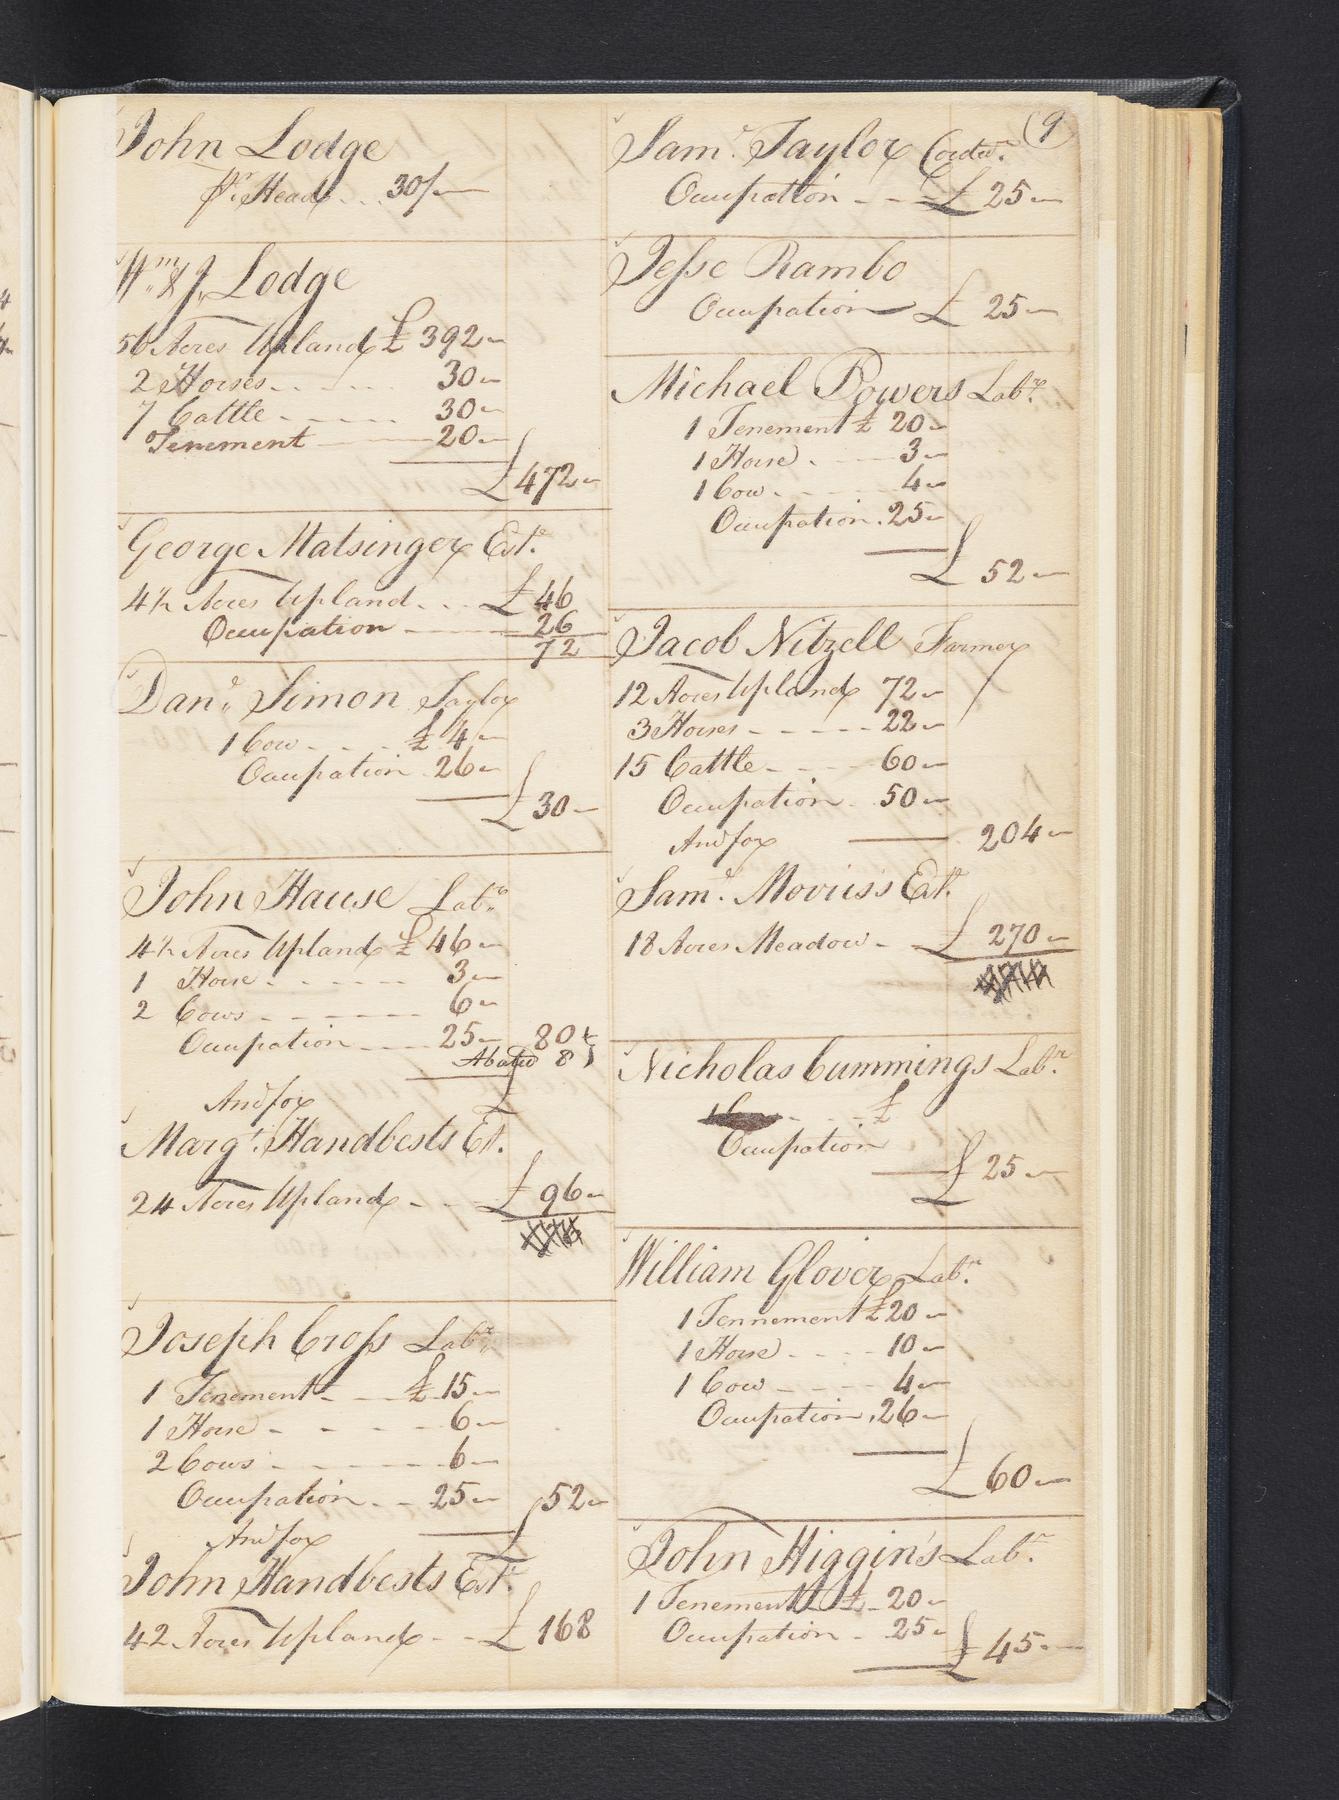 John Lodge
Pr. Head 30/
Wm. & J. Lodge
56 Acres Upland £ 392
2 Horses 30
7 Cattle 30
Tenement 20
£ 472
George Matsinger Estt.
4½ Acres Upland £ 46
Occupation 26
72
Danl. Simon Taylor
1 Cow £ 4
Occupation 26
£ 30
John Hause Labr.
4½ Acres Upland £ 46
1 Horse 3
2 Cows 6
Occupation 25 80
Abated 8
And for
Margt. Handbests Et.
24 Acres Upland £ 96
Joseph Cross Labr.
1 Tenement £ 15
1 Horse 6
2 Cows 6
Occupation 25 £ 52
And for
John Handbests Est.
42 Acres Upland £ 168
(9
Saml. Taylor Cordwr.
Occupation £ 25
Jesse Rambo
Occupation £ 25
Michael Powers Labr.
1 Tenement £ 20
1 Horse 3
1 Cow 4
Occupation 25
£ 52
Jacob Nitzell Farmer
12 Acres Upland 72
3 Horses 22
15 Cattle 60
Occupation 50
And for 204
Saml. Morris's Est.
18 Acres Meadow £ 270
Nicholas Cummings Labr.
£
Occupation
£ 25
William Glover Labr.
1 Tennement £ 20
1 Horse 10
1 Cow 4
Occupation 26
£ 60
John Higgin's Labr.
1 Tenement £ 20
Occupation 25
£ 45